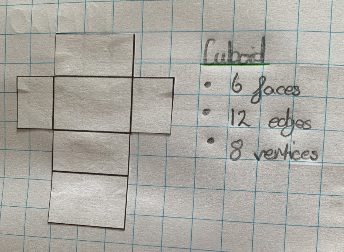 Cuboid
• 6 faces
• 12 edges
• 8 vertices